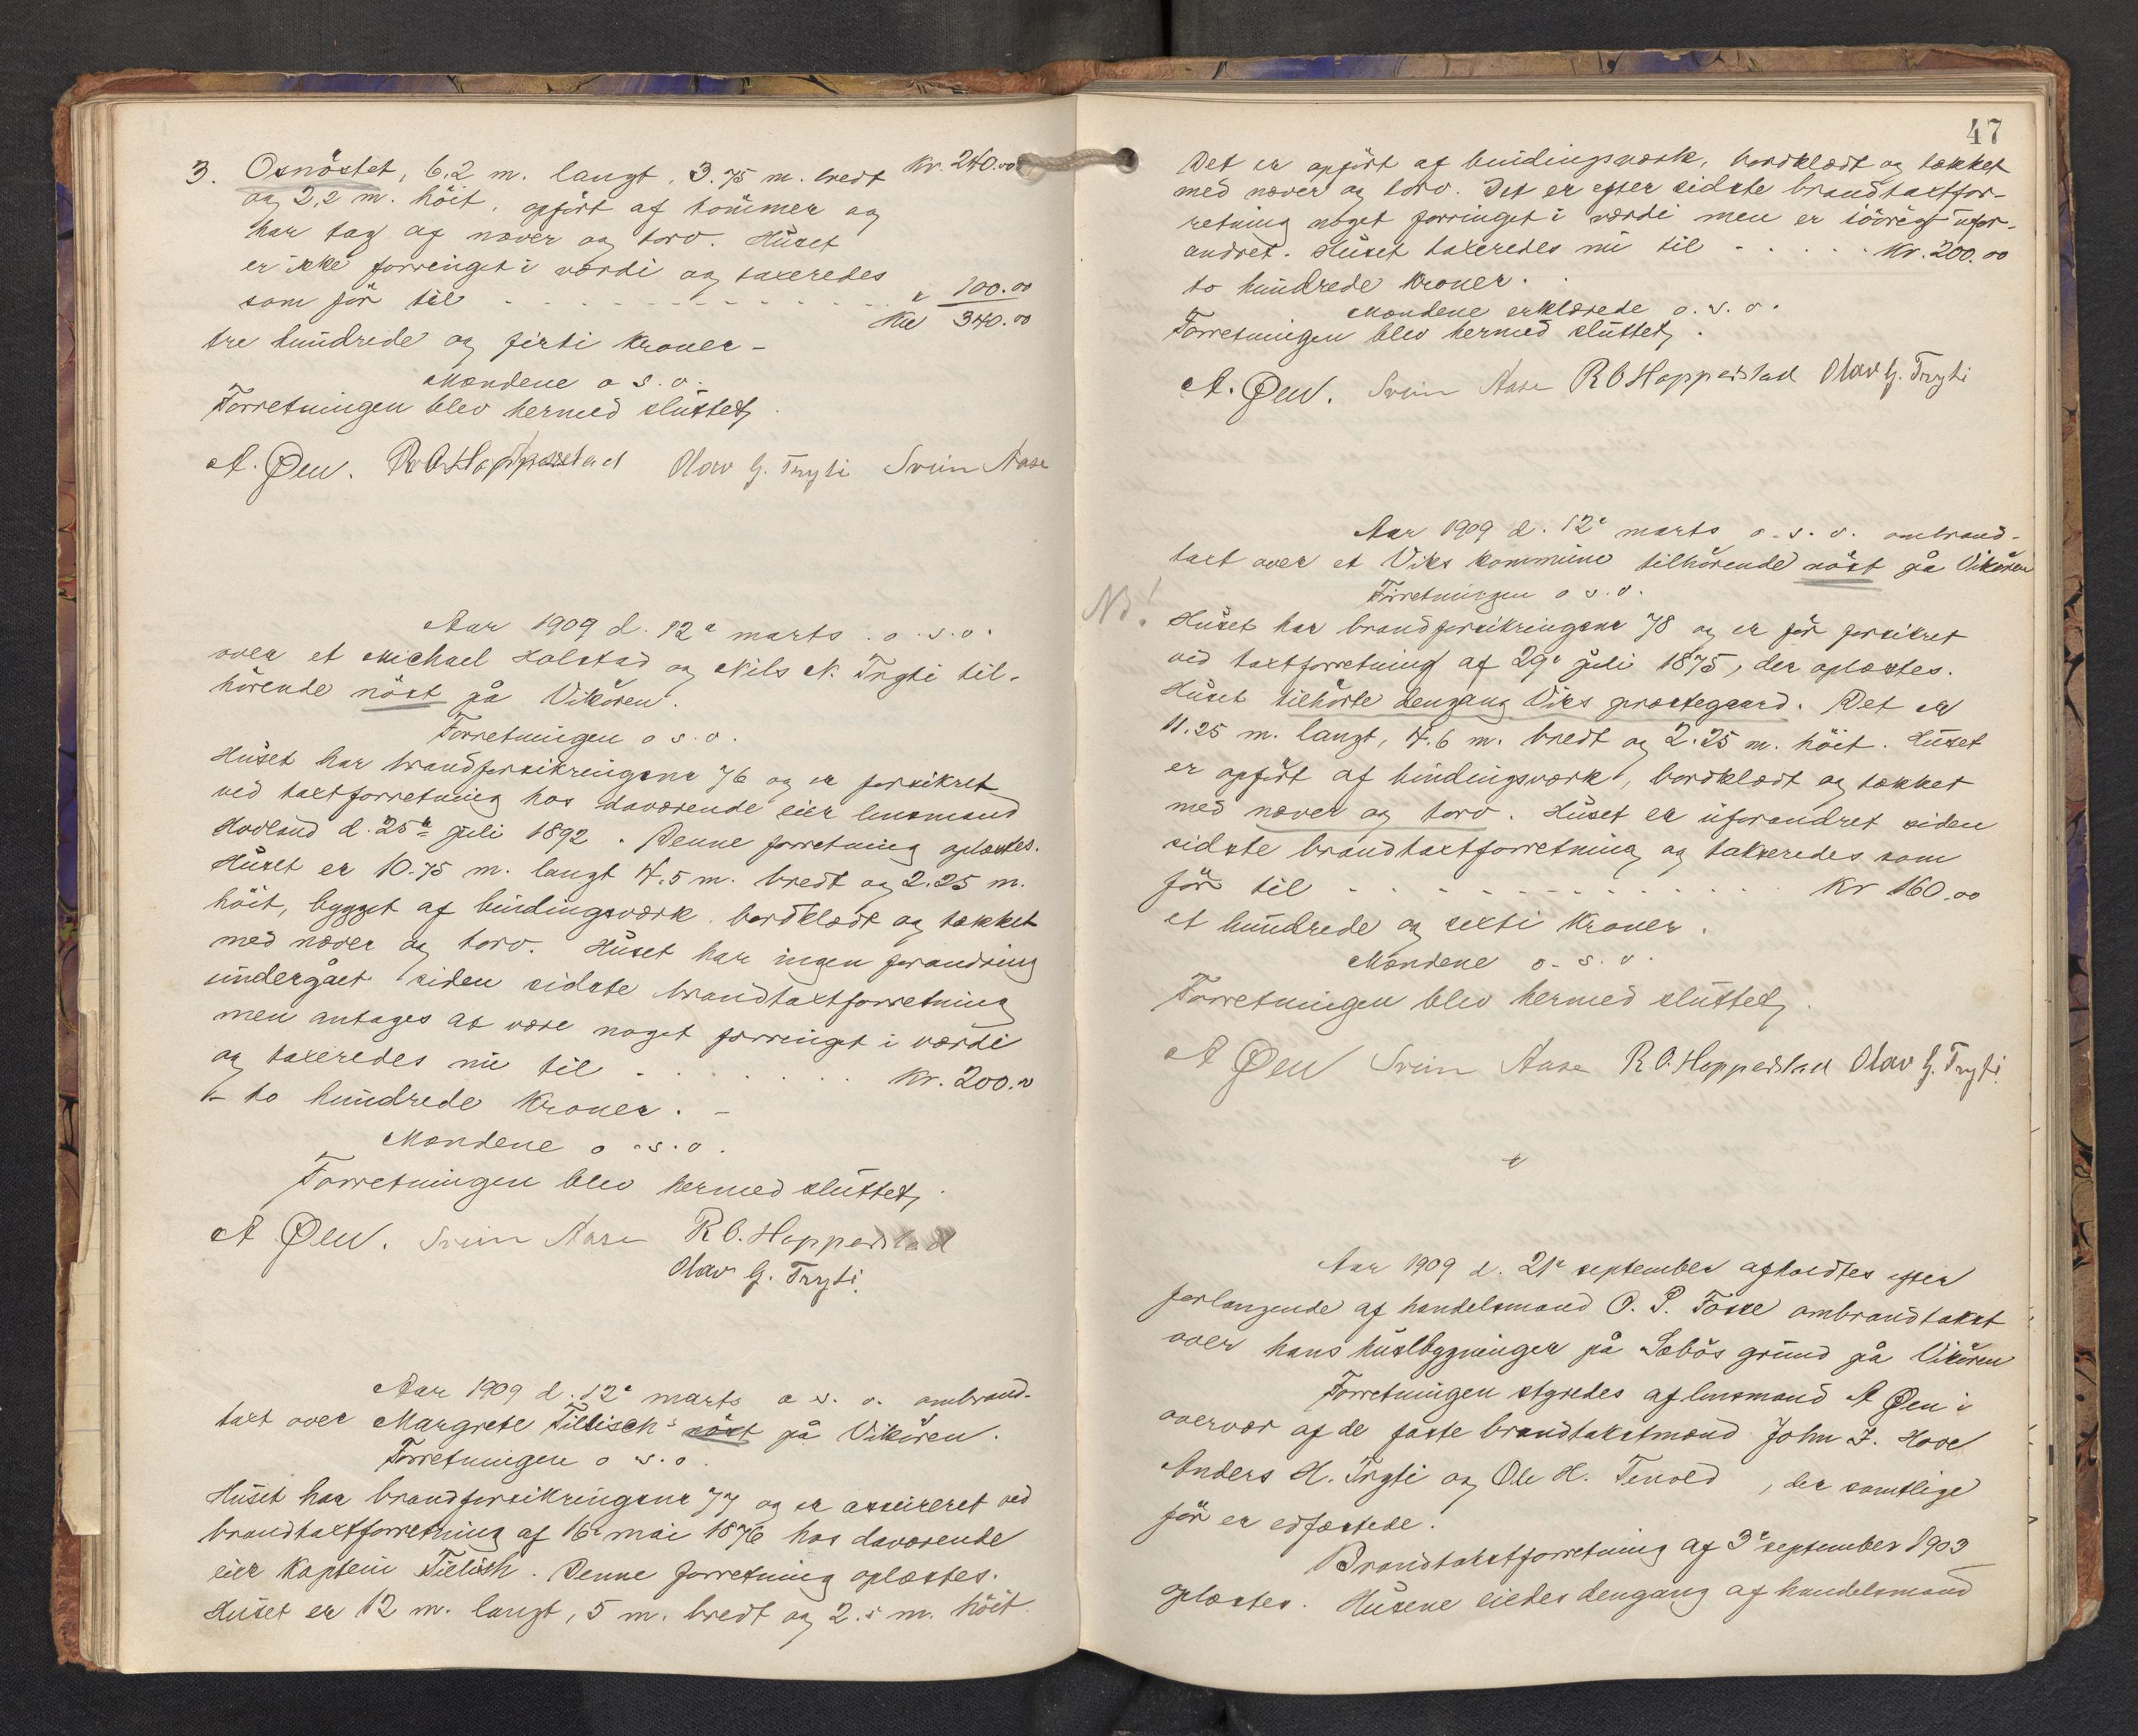 3. Osnöstet, 6,2 m. langt, 3.75 m. bredt Kr. 240.00
og 2,2 m. höit, opfört af tömmer og
har tag af næver og torv. Huset
er ikke forringet i værdi og taxeredes
som för til - - - - - - " 100.00
Kr 340.00
tre hundrede og firti kroner -
Mændene o s. v.
Forretningen blev hermed sluttet.
A. Øen. R O Hopperstad Olav G. Tryti Svein Aase
Aar 1909 d. 12te marts . o. s. v.
over et Michael Holstad og Nils N. Tryti til-
hörende nöst på Vikören.
Forretningen o s. v.
Huset har brandforsikringsnr 76 og er forsikret
ved taxtforretning hos daværende eier lensmand
Hovland d. 25de juli 1892. Denne forretning oplæstes.
Huset er 10.75 m. langt 4.5 m. bredt og 2.25 m.
höit, bygget af bindingsværk bordklædt og tækket
med næver og torv. Huset har ingen forandring
undergået siden sidste brandtaxtforretning
men antages at være noget forringet i værdi
og taxeredes nu til . . . . . . Kr. 200.00
- to hundrede kroner. -
Mændene o. s. v.
Forretningen blev hermed sluttet.
A Øen. Svein Aase R O. Hopperstad
Olav G. Tryti.
Aar 1909 d. 12te marts o s. v. ombrand-
taxt over Margrete Tillisch's nöst på Vikören.
Forretningen o s. v.
Huset har brandforsikringsnr 77 og er assureret ved
brandtaxtforretning af 16de mai 1876 hos daværende
eier kaptein Tillisch. Denne forretning oplæstes.
Huset er 12 m. langt, 5 m. bredt og 2.5 m. höit
47
Det er opfört af bindingsværk, bordklædt og tækket
med næver og torv. Det er efter sidste brandtaxtfor-
retning noget forringet i værdi men er iövrigt ufor-
andret. Huset taxeredes nu til - . . . . Kr. 200.00
to hundrede kroner.
Mændene erklærede o. s. v.
Forretningen blev hermed sluttet.
A. Øen. Svein Aase R O Hopperstad Olav G. Tryti
Aar 1909 d. 12te marts o. s. v. ombrand-
taxt over et Viks kommune tilhörende nöst på Vikören
Forretningen o s. v.
Nb! Huset har brandforsikringsnr 78 og er för forsikret
ved taxtforretning af 29de juli 1875, der oplæstes.
Huset tilhörte dengang Viks prestegaard. Det er
11.25 m. langt, 4.6 m. bredt og 2.25 m. höit. Huset
er opfört af bindingsværk, bordklædt og tækket
med næver og torv. Huset er uforandret siden
sidste brandtaxtforretning og takseredes som
för til - - - - - - - Kr 160.00
et hundrede og sexti kroner.
Mændene o. s. v.
Forretningen blev hermed sluttet.
A Øen Svein Aase R O. Hopperstad Olav G. Tryti.
Aar 1909 d. 21de september afholdtes efter
forlangende af handelsmand O. P. Fosse ombrandtakst
over hans husbygninger på Sæbös grund på Vikören
Forretningen styredes af lensmand A Øen i
overvær af de faste brandtakstmænd John I. Hove
Anders H. Tryti og Ole H. Tenold, der samtlige
för er edfæstede.
Brandtakstforretning af 3de september 1903
oplæstes. Husene eiedes dengang af handelsmand